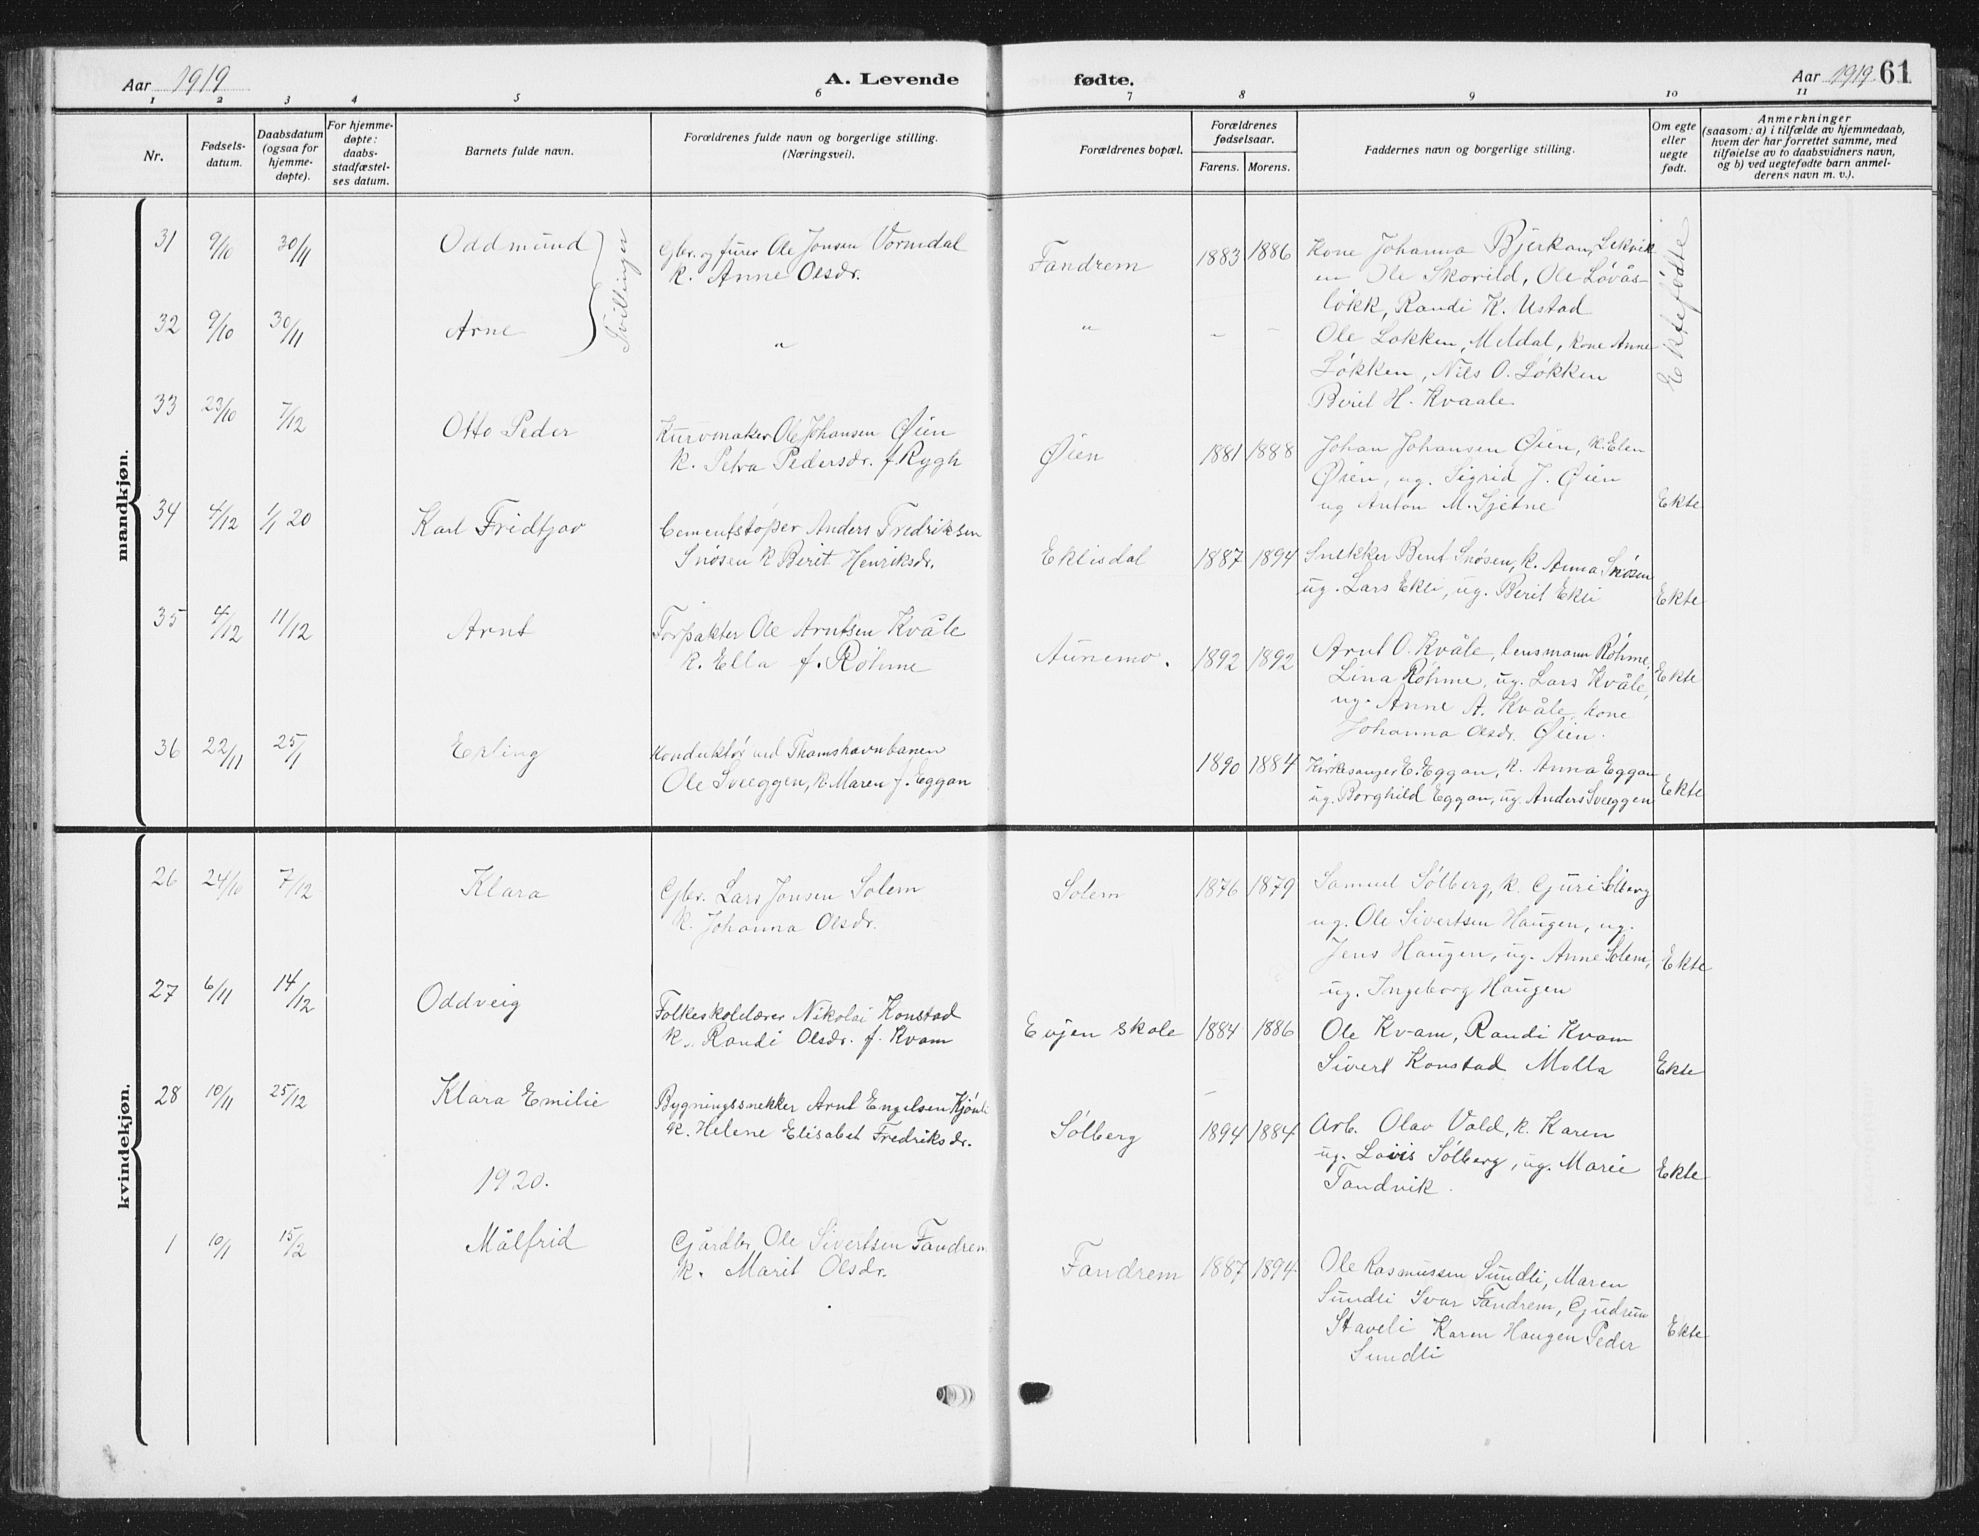 Aar 1919
A. Levende fødte.
Aar 1919 61
1 2 3 4 5 6 7 8 9 10 11
Nr.
Fødsels-
datum.
Daabsdatum
(ogsaa for
hjemme-
døpte).
For hjemme-
døpte:
daabs-
stadfæstel-
ses datum.
Barnets fulde navn.
Forældrenes fulde navn og borgerlige stilling.
(Næringsvei).
Forældrenes bopæl.
Forældrenes
fødselsaar.
Farens. Morens.
Faddernes navn og borgerlige stilling.
Om egte
eller
uegte
født.
Anmerkninger
(saasom: a) i tilfælde av hjemmedaab,
hvem der har forrettet samme, med
tilføielse av to daabsvidners navn,
og b) ved uegtefødte barn anmel-
derens navn m. v.).
mandkjøn.
31 9/10 30/11 Oddmund
Tvillinger
Gbr. og furer Ole Jonsen Vormdal
k. Anne Olsdr.
Fandrem 1883 1886
Kone Johanna Bjerkan, Lekvik
en Ole Skorild, Ole Løvås-
løkk, Randi K. Ustad
Ektefødte
32 9/10 30/11 Arne
" " - -
Ole Løkken, Meldal, kone Anne
Løkken, Nils O. Løkken
Berit H. Kvaale
33 23/10 7/12 Otto Peder
Kurvmaker Ole Johansen Øien
k. Petra Pedersdr. f. Rygh
Øien 1881 1888
Johan Johansen Øien, k. Elen
Øien, ug. Sigrid J. Øien
ug Anton M. Sjetne
Ekte
34 4/12 1/1 20 Karl Fridtjov
Cementstøper Anders Fredriksen
Snøsen k Berit Henriksdr.
Eklisdal 1887 1894
Snekker Bent Snøsen, k. Anna Snøsen
ug. Lars Ekli, ug. Berit Ekli
Ekte
35 4/12 11/12 Arnt
Forpakter Ole Arntsen Kvåle
k. Ella f. Røhme
Aunemo. 1892 1892
Arnt O. Kvåle, lensmann Røhme,
Lina Røhme, ug. Lars Kvåle,
ug. Anne A. Kvåle, kone
Johanna Olsdr. Øien.
Ekte
36 22/11 25/1 Erling
Konduktør ved Thamshavnbanen
Ole Sveeggen, k. Maren f. Eggan
1890 1884
Kirkesanger E. Eggan, k. Anna Eggan
ug. Borghild Eggan, ug. Anders Sveeggen
Ekte
kvindekjøn.
26 24/10 7/12 Klara
Gbr. Lars Jonsen Solem
k. Johanna Olsdr.
Solem 1876 1879
Samuel Sølberg, k. Guri Sølberg
ug. Ole Sivertsen Haugen, ug.
Jens Haugen, ug. Anne Solem,
ug. Ingeborg Haugen
Ekte
27 6/11 14/12 Oddveig
Folkeskolelærer Nikolai Konstad
k. Randi Olsdr. f. Kvam
Evjen skole 1884 1886
Ole Kvam, Randi Kvam
Sivert Konstad Molla
Ekte
28 10/11 25/12 Klara Emilie
Bygningssnekker Arnt Engelsen
k. Helene Elisabet Fredriksdr.
Sølberg 1894 1884
Arb. Olav Vold, k. Karen
ug. Lovis Sølberg, ug. Marie
Fandvik.
Ekte
1920.
1 10/1 15/2 Målfrid
Gårdbr. Ole Sivertsen Fandrem
k. Marit Olsdr.
Fandrem 1887 1894
Ole Rasmussen Sundli, Maren
Sundli Ivar Fandrem, Gudrun
Staveli Karen Haugen Peder
Sundli
Ekte